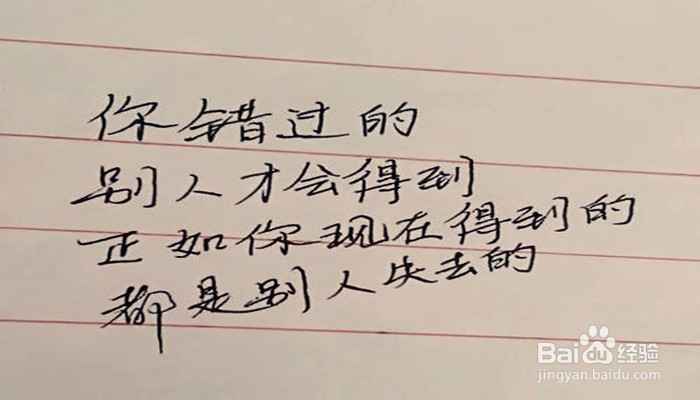 你错过的
别人才会得到
正如你现在得到的
都是别人失去的
Bai du 经验
jingyan.baidu.com